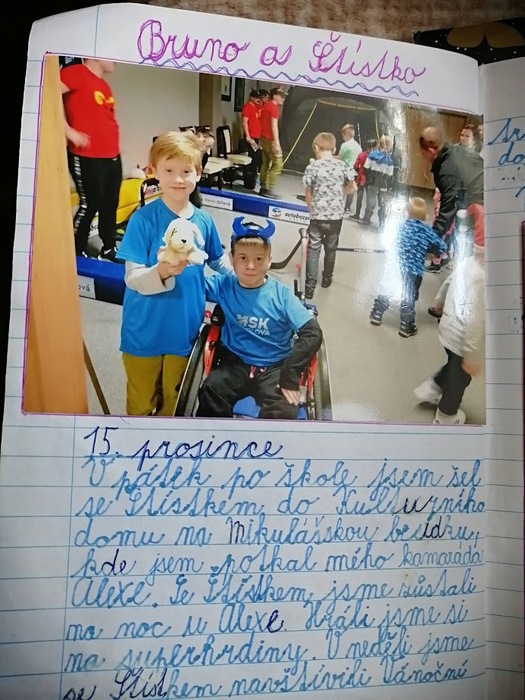 Bruno a Štístko
autobazar
HSK
15. prosince
V pátek po škole jsem šel
se Štístkem do Kulturního
domu na Mikulášskou besídku,
kde jsem potkal mého kamaráda
Alexe. Se Štístkem jsme zůstali
na noc u Alexe. Hráli jsme si
na superhrdiny. V neděli jsme
se Štístkem navštívili Vánoční